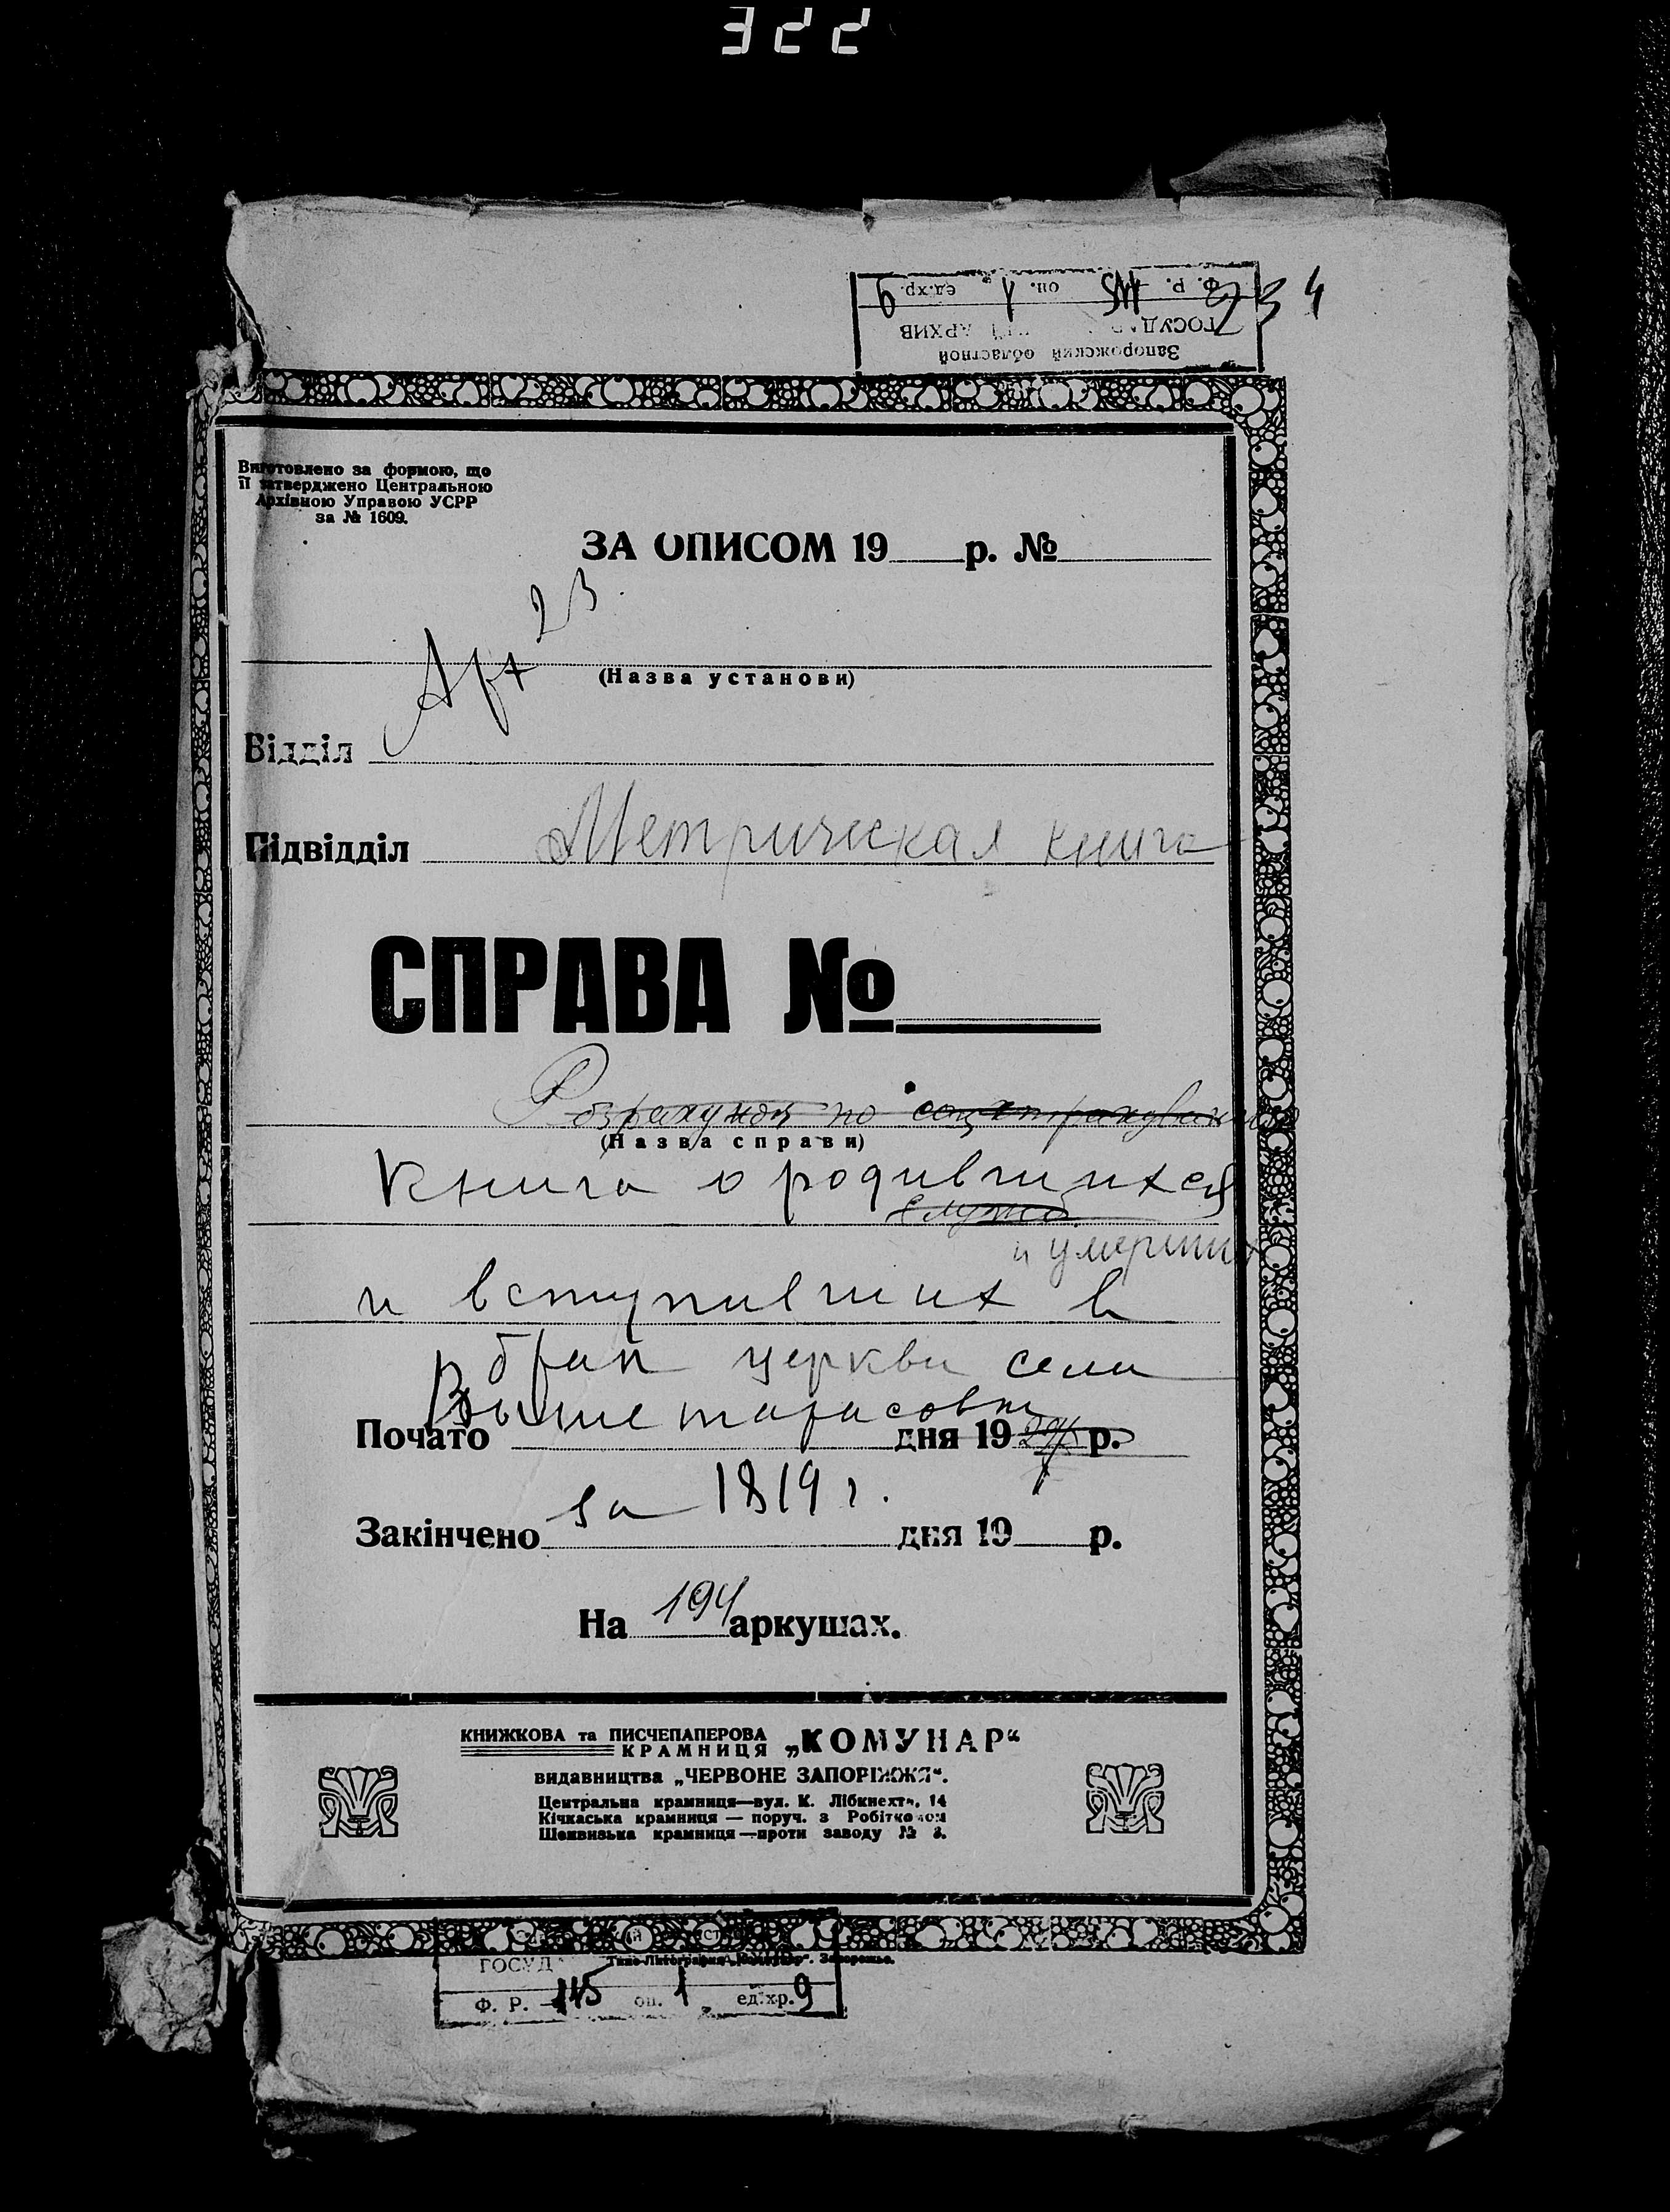 322
Ф. Р. 145 оп. 1 ед.хр. 9
АРХИВ
Запорожский областной
Виготовлено за формою, що
її затверджено Центральною
Архівною Управою УСРР
за № 1609.
ЗА ОПИСОМ 19 р. №
Арх 23
(Назва установи)
Відділ
Підвідділ Метрическая книга
СПРАВА №
Розрахунки по соцстрахуванню
(Назва справи)
Книга о родившихся
и умерших
и вступивших в
брак церкви села
Вышетарасовки
Почато дня 19 р.
за 1819 г.
Закінчено дня 19 р.
На 194 аркушах.
КНИЖКОВА та ПИСЧЕПАПЕРОВА
КРАМНИЦЯ „КОМУНАР“
видавництва „ЧЕРВОНЕ ЗАПОРІЖЖЯ“.
Центральна крамниця—вул. К. Лібкнехта, 14
Кічкаська крамниця — поруч. з Робіткомом
Шенвизька крамниця—проти заводу № 3.
Типо-Литография „Коммунар“. Запорожье.
ГОСУД
Ф. Р. 145 оп. 1 ед.хр. 9